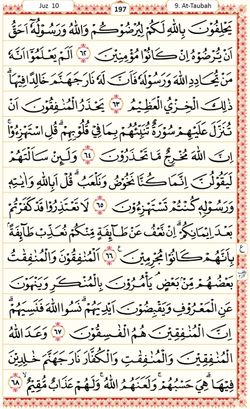 Juz 10
197
9. At-Taubah
يَحْلِفُوْنَ بِاللّٰهِ لَكُمْ لِيُرْضُوْكُمْ وَاللّٰهُ وَرَسُوْلُهٗٓ اَحَقُّ
اَنْ يُّرْضُوْهُ اِنْ كَانُوْا مُؤْمِنِيْنَ ٦٢ اَلَمْ يَعْلَمُوْٓا اَنَّهٗ
مَنْ يُّحَادِدِ اللّٰهَ وَرَسُوْلَهٗ فَاَنَّ لَهٗ نَارَ جَهَنَّمَ خَالِدًا فِيْهَاۗ
ذٰلِكَ الْخِزْيُ الْعَظِيْمُ ٦٣ يَحْذَرُ الْمُنٰفِقُوْنَ اَنْ
تُنَزَّلَ عَلَيْهِمْ سُوْرَةٌ تُنَبِّئُهُمْ بِمَا فِيْ قُلُوْبِهِمْۗ قُلِ اسْتَهْزِءُوْاۚ
اِنَّ اللّٰهَ مُخْرِجٌ مَّا تَحْذَرُوْنَ ٦٤ وَلَىِٕنْ سَاَلْتَهُمْ
لَيَقُوْلُنَّ اِنَّمَا كُنَّا نَخُوْضُ وَنَلْعَبُۗ قُلْ اَبِاللّٰهِ وَاٰيٰتِهٖ
وَرَسُوْلِهٖ كُنْتُمْ تَسْتَهْزِءُوْنَ ٦٥ لَا تَعْتَذِرُوْا قَدْ كَفَرْتُمْ
بَعْدَ اِيْمَانِكُمْۗ اِنْ نَّعْفُ عَنْ طَاۤىِٕفَةٍ مِّنْكُمْ نُعَذِّبْ طَاۤىِٕفَةًۢ
بِاَنَّهُمْ كَانُوْا مُجْرِمِيْنَ ٦٦ اَلْمُنٰفِقُوْنَ وَالْمُنٰفِقٰتُ
بَعْضُهُمْ مِّنْۢ بَعْضٍۘ يَأْمُرُوْنَ بِالْمُنْكَرِ وَيَنْهَوْنَ
عَنِ الْمَعْرُوْفِ وَيَقْبِضُوْنَ اَيْدِيَهُمْۗ نَسُوا اللّٰهَ فَنَسِيَهُمْۗ
اِنَّ الْمُنٰفِقِيْنَ هُمُ الْفٰسِقُوْنَ ٦٧ وَعَدَ اللّٰهُ
الْمُنٰفِقِيْنَ وَالْمُنٰفِقٰتِ وَالْكُفَّارَ نَارَ جَهَنَّمَ خٰلِدِيْنَ
فِيْهَاۗ هِيَ حَسْبُهُمْۚ وَلَعَنَهُمُ اللّٰهُۚ وَلَهُمْ عَذَابٌ مُّقِيْمٌ ٦٨